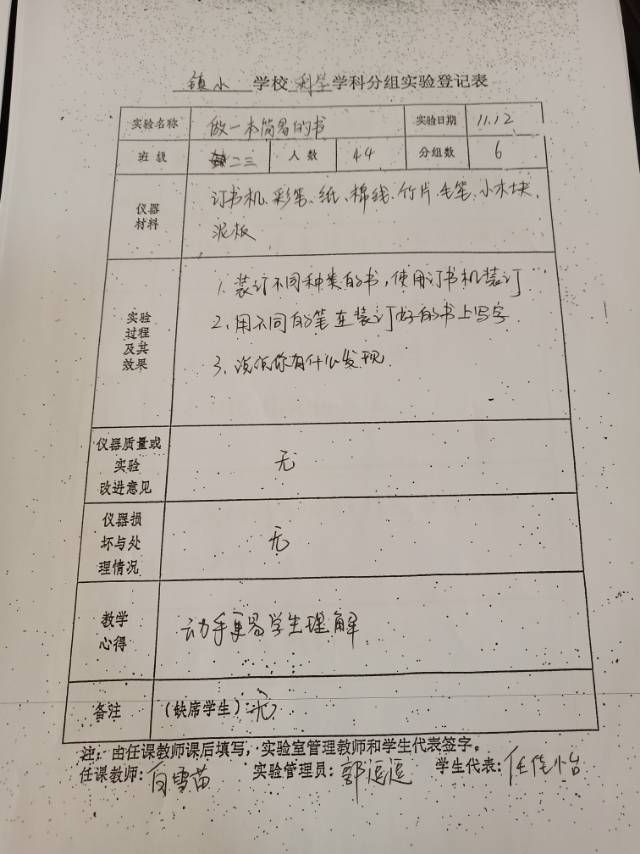 镇小 学校 科学 学科分组实验登记表
实验名称 做一本简易的书 实验日期 11.12
班级 二三 人数 44 分组数 6
仪器材料 订书机、彩笔、纸、棉线、竹片、毛笔、小木块、
泥板
实验过程及其效果 1、装订不同种类的书,使用订书机装订
2、用不同的笔在装订好的书上写字
3、说说你有什么发现
仪器质量或实验改进意见 无
仪器损坏与处理情况 无
教学心得 动手更易学生理解
备注 (缺席学生):无
注:由任课教师课后填写,实验室管理教师和学生代表签字。
任课教师:白雪苗 实验管理员:郭逗逗 学生代表:任佳怡